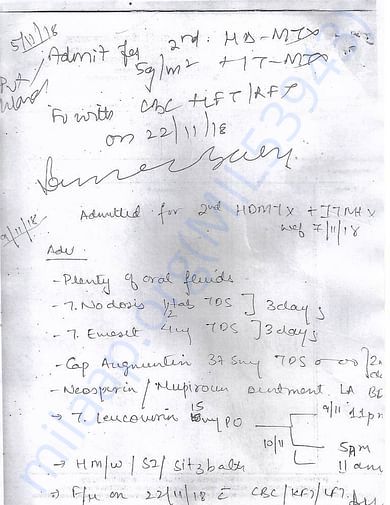 5/11/18
Admit for 2nd. HD-MTX
5g/m² + IT-MTX
Pvt Ward
F/u with CBC + LFT/RFT
on 22/11/18
9/11/18
Admitted for 2nd HDMTX + ITMTX
wef 7/11/18
Adv
- Plenty of oral fluids
- T. Nodosis 1/2 tab TDS ] 3 days
- T. Emeset 4mg TDS ] 3 days
- Cap Augmentin 375mg TDS
- Neosporin / Mupirocin ointment LA
→ T. Leucovorin 15 mg PO
9/11 11pm
10/11
5 AM
11 am
→ HM/W / S2 / Sitz bath
→ F/u on 22/11/18 c̄ CBC/KFT/LFT.
milaap.org(MIL539428)